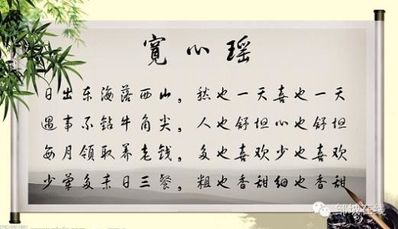 寬心瑶
日出东海落西山，愁也一天喜也一天
遇事不钻牛角尖，人也舒坦心也舒坦
每月领取养老钱，多也喜欢少也喜欢
少荤多素日三餐，粗也香甜细也香甜
邹城在线